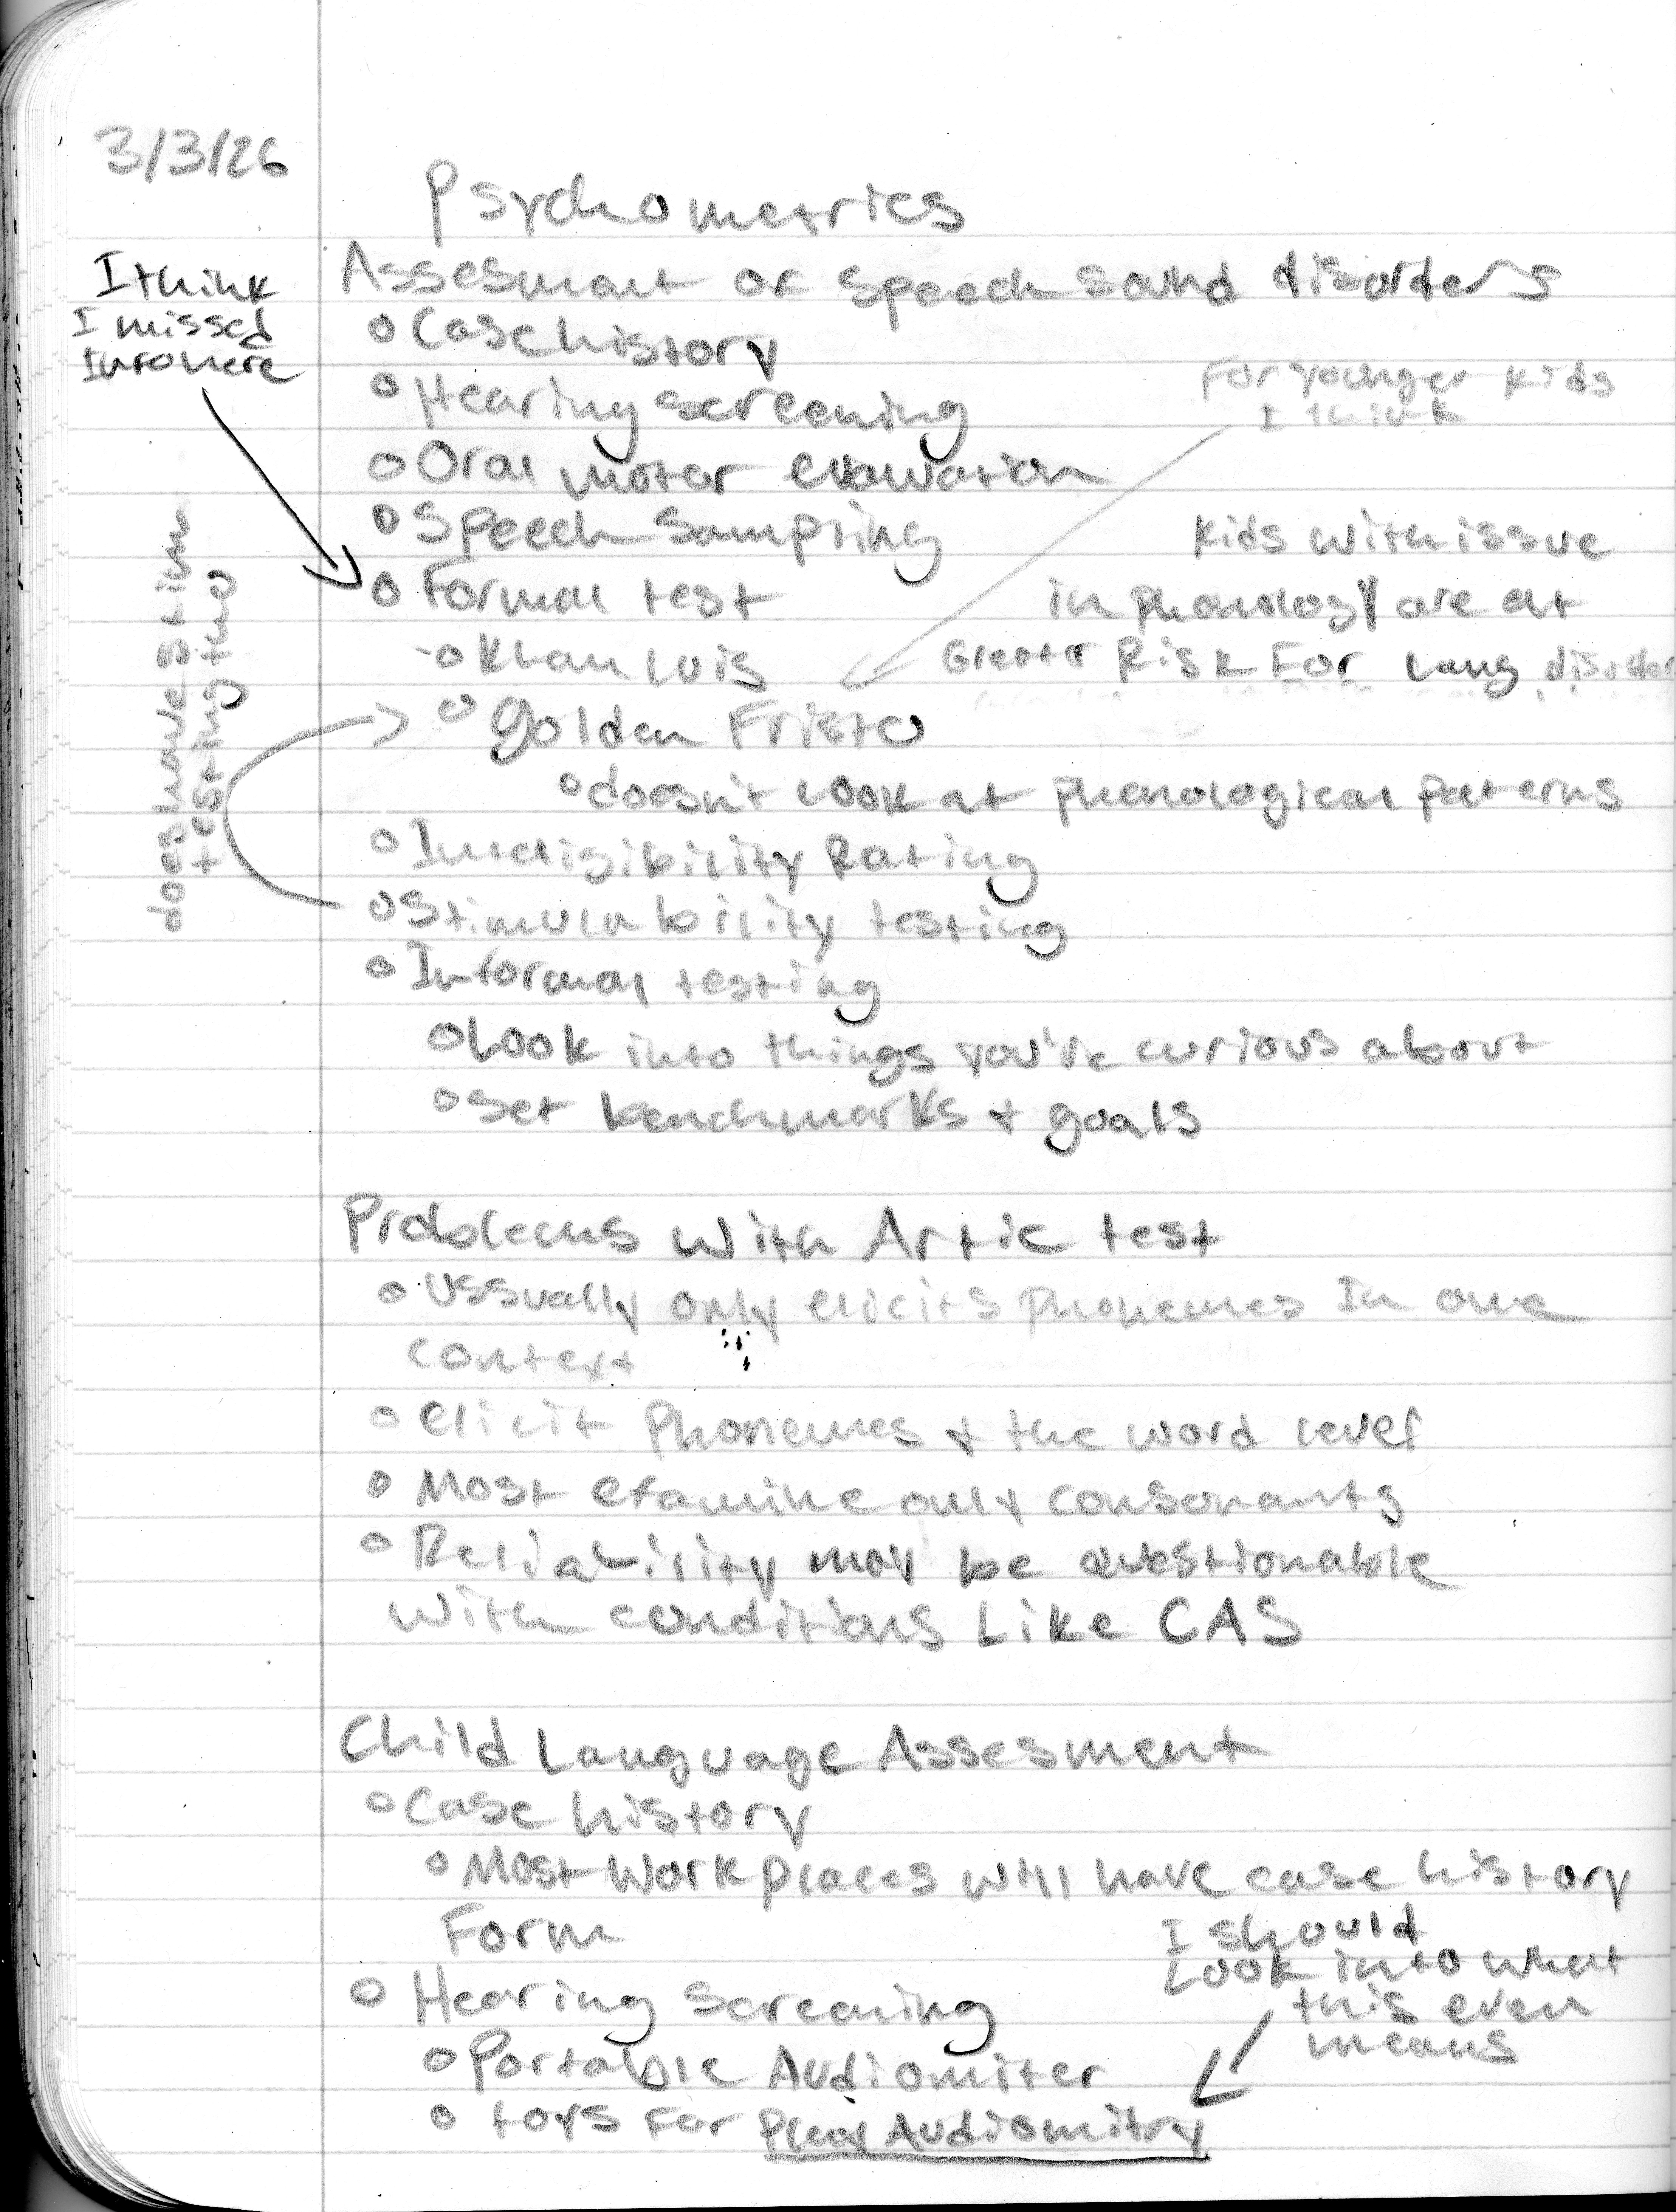 3/3/26
Psychometrics
I think
I missed
Intro here
Assesment of speech sound disorders
o Case history
o Hearing screening
For younger kids
I think
o Oral motor evaluation
o Speech Sampling
Kids with issue
in phonology are at
Greater Risk For Lang disorder
o Formal test
-o Khan luis
o golden Fristo
o doesn't look at phenological patterns
does have stim
testing tho
o Inteligibility Rating
o Stimulability testing
o Informal testing
o Look into things you're curious about
o set benchmarks + goals
Problems with Artic test
o Ussually only elicits phonemes In one
context
o elicit phonemes + the word level
o Most examine only consonants
o Reliability may be questionable
with conditions Like CAS
Child Language Assesment
o Case history
o Most Work places will have case history
Form
o Hearing Screening
I should
Look into what
this even
means
o Portable Audiomiter
o toys For Play Audiomitry